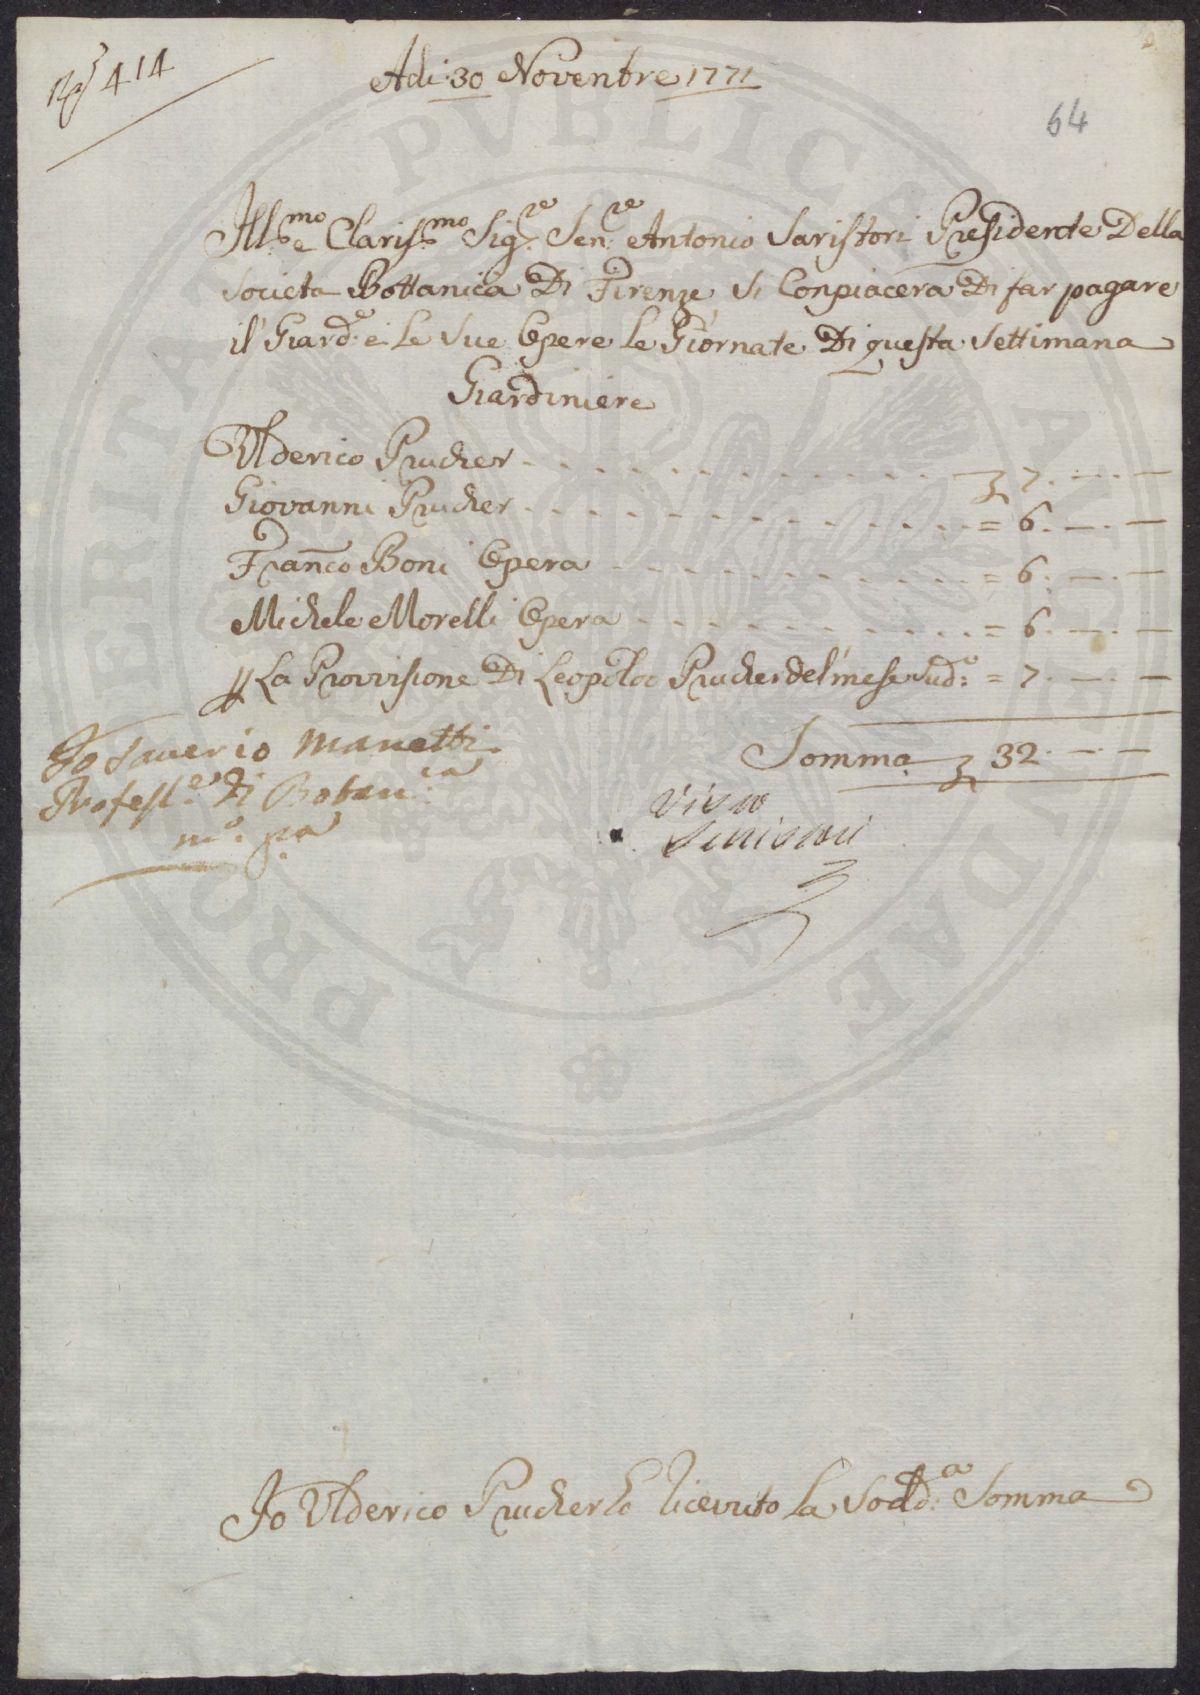 414
Adi: 30 Novenbre 1771
64
Ill:mo e Claris:mo Sig:re Sen:re Antonio Saristori Presidente Della
Societa Bottanica Di Firenze si Conpiacera Di far pagare
il' Giard:e e le Sue Opere le Giornate Di questa Settimana
Giardiniere
Ulderico Prucher - - - - - - - - - - - - - - 7. —. —
Giovanni Prucher - - - - - - - - - - - - - - = 6. —. —
Fran̄co Boni Opera - - - - - - - - - - - - = 6. —. —
Michele Morelli Opera - - - - - - - - - - = 6. —. —
La Provvisione Di Leopoldo Prucher del' mese Sud:o = 7. —. —
Somma 32. —. —
Io Saverio Manetti
Profess:e di Botan:ca
m:o p:a
Visto
Io Ulderico Prucher ho ricevuto la Sodd:a Somma
PRO VERITATE PVBLICA AVCTVDAE